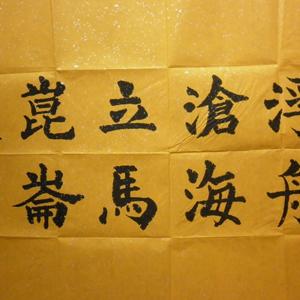 浮舟
滄海
立馬
崑崙